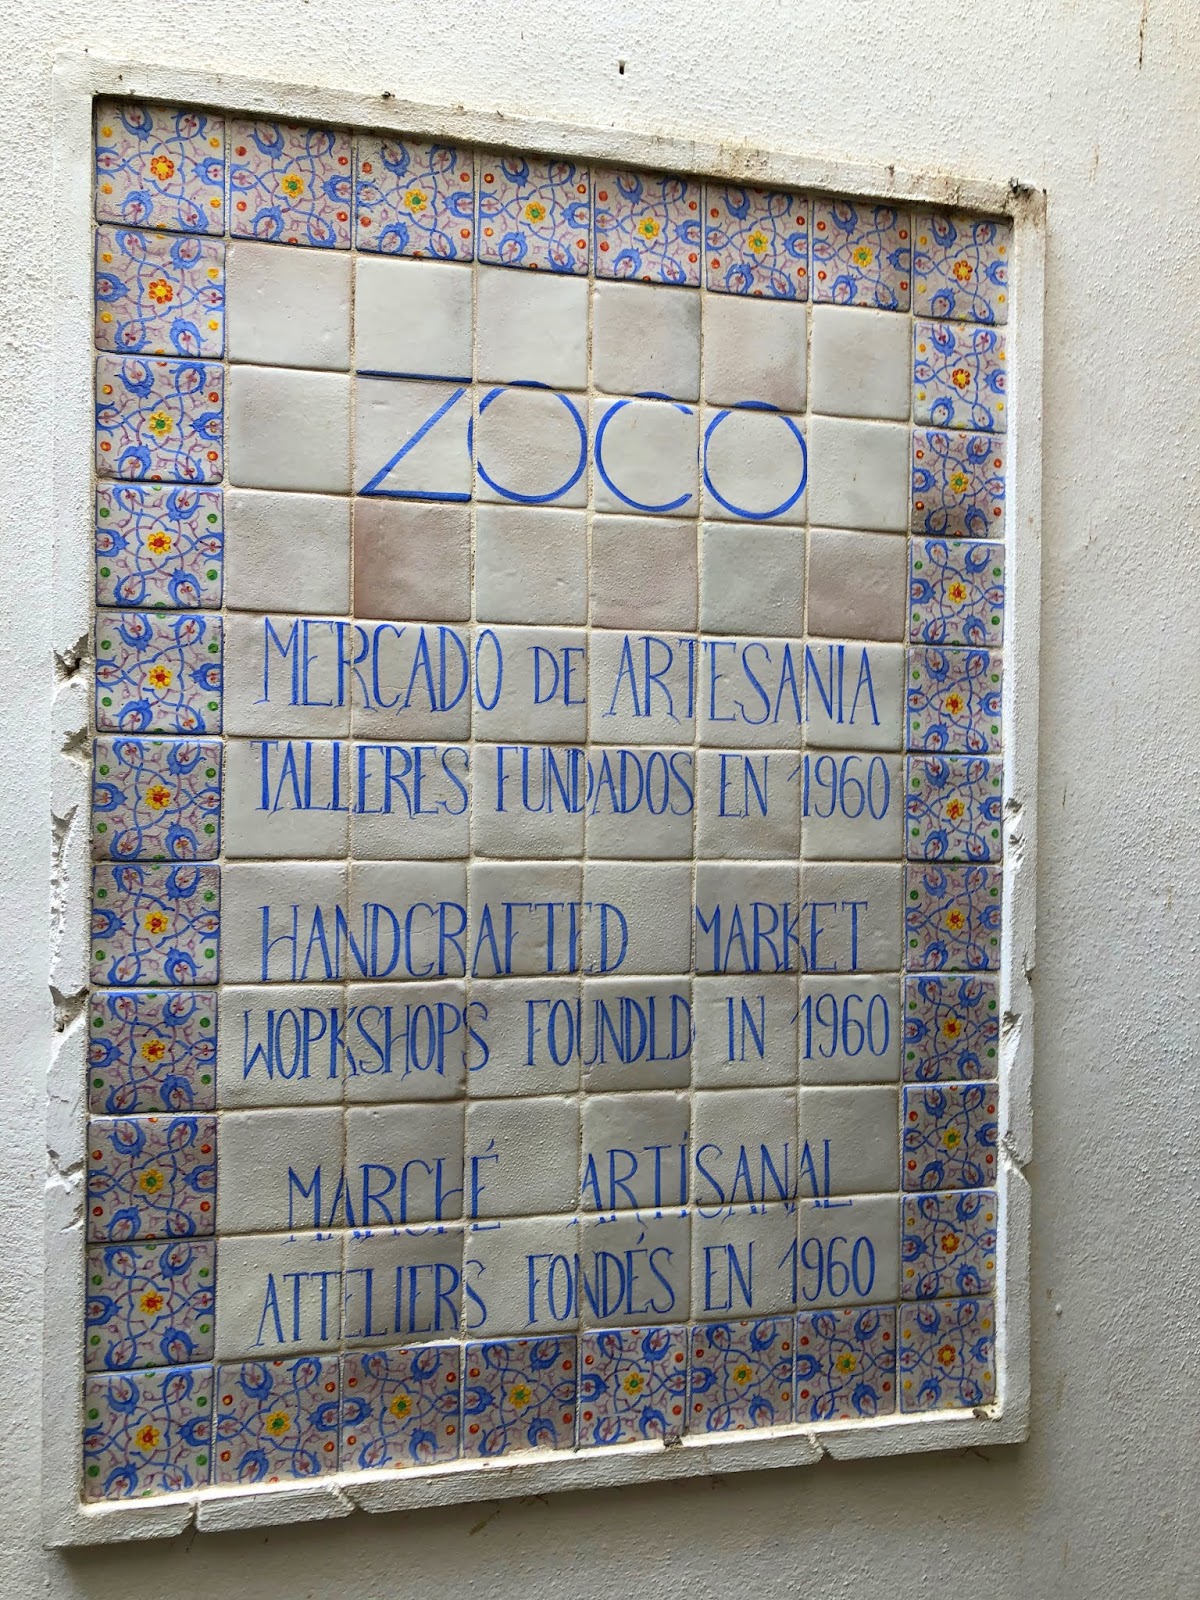 ZOCO
MERCADO DE ARTESANIA
TALLERES FUNDADOS EN 1960
HANDCRAFTED MARKET
WOPKSHOPS FOUNDLD IN 1960
MARCHÉ ARTÍSANAL
ATTELIERS FONDÉS EN 1960